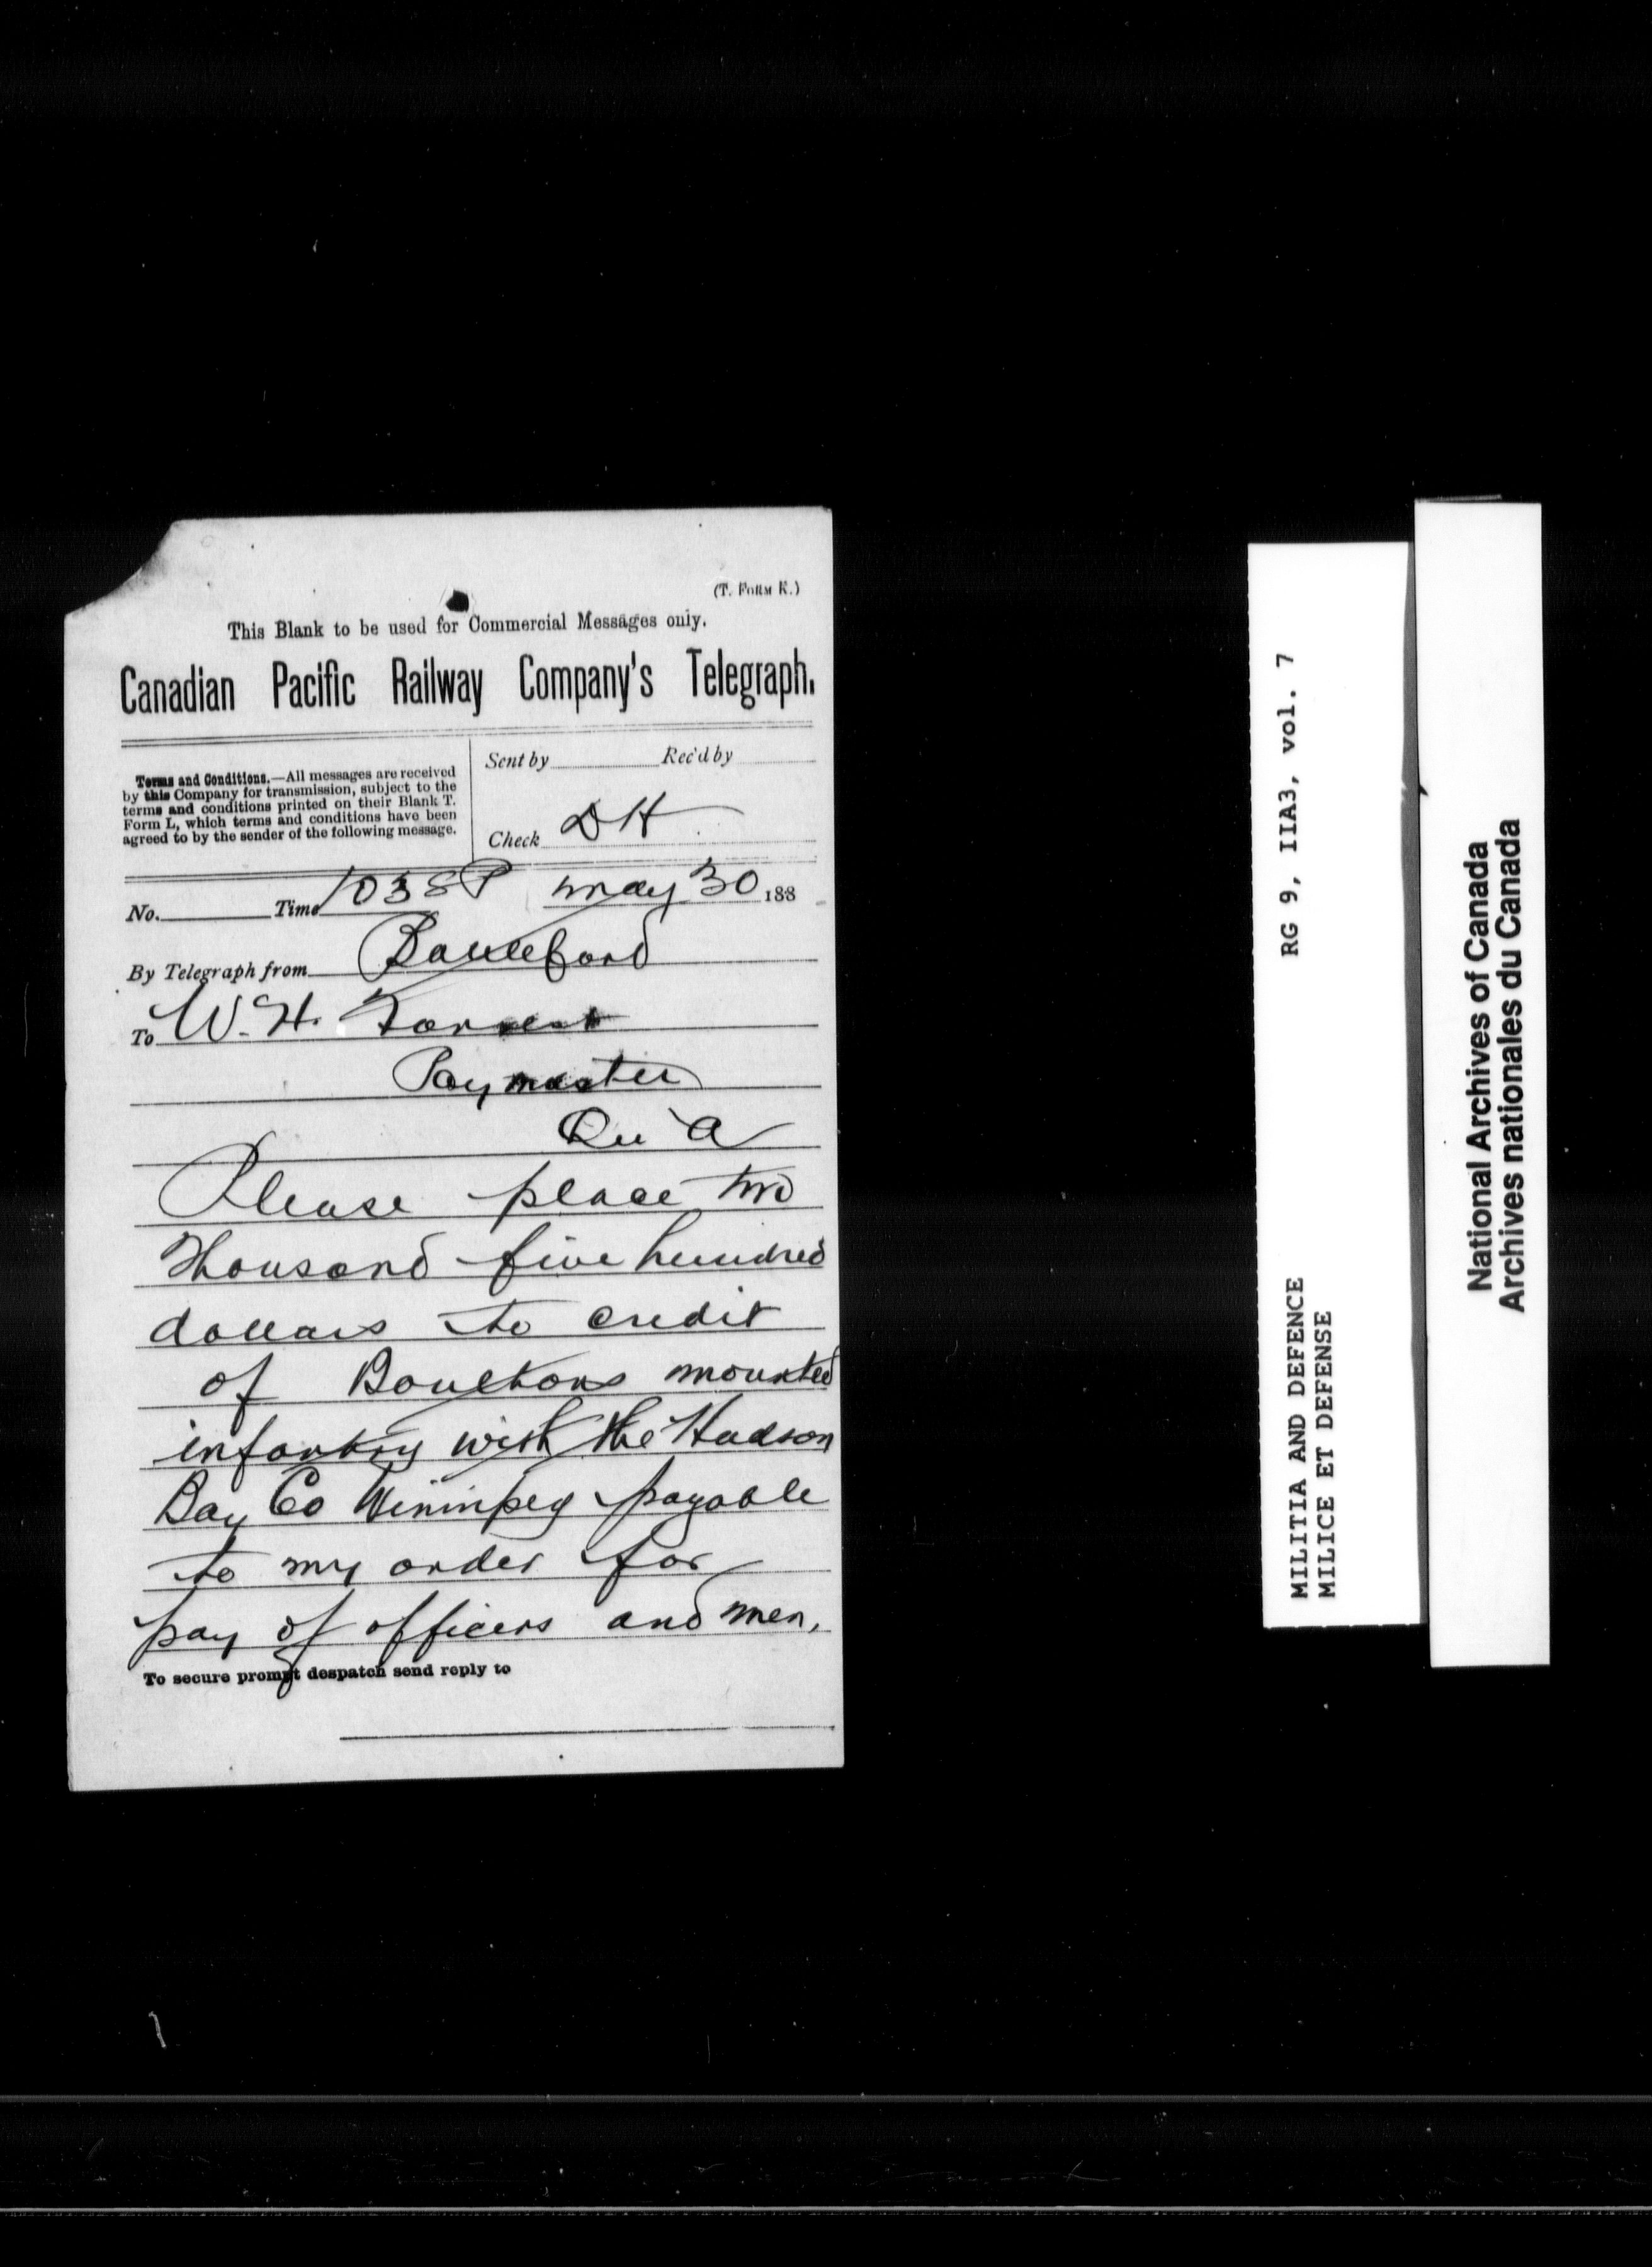 (T. FORM K.)
This Blank to be used for Commercial Messages only.
Canadian Pacific Railway Company's Telegraph.
Terms and Conditions.—All messages are received
by this Company for transmission, subject to the
terms and conditions printed on their Blank T.
Form L, which terms and conditions have been
agreed to by the sender of the following message.
Sent by Rec'd by
Check DH
No. Time 1038P May 30 188
By Telegraph from Battleford
To W. H. Forrest
Paymaster
Qu A
Please place two
thousand five hundred
dollars to credit
of Boultons mounted
infantry with the Hudson
Bay Co Winnipeg payable
to my order for
pay of officers and men,
To secure prompt despatch send reply to
MILITIA AND DEFENCE RG 9, IIA3, vol. 7
MILICE ET DEFENSE
National Archives of Canada
Archives nationales du Canada